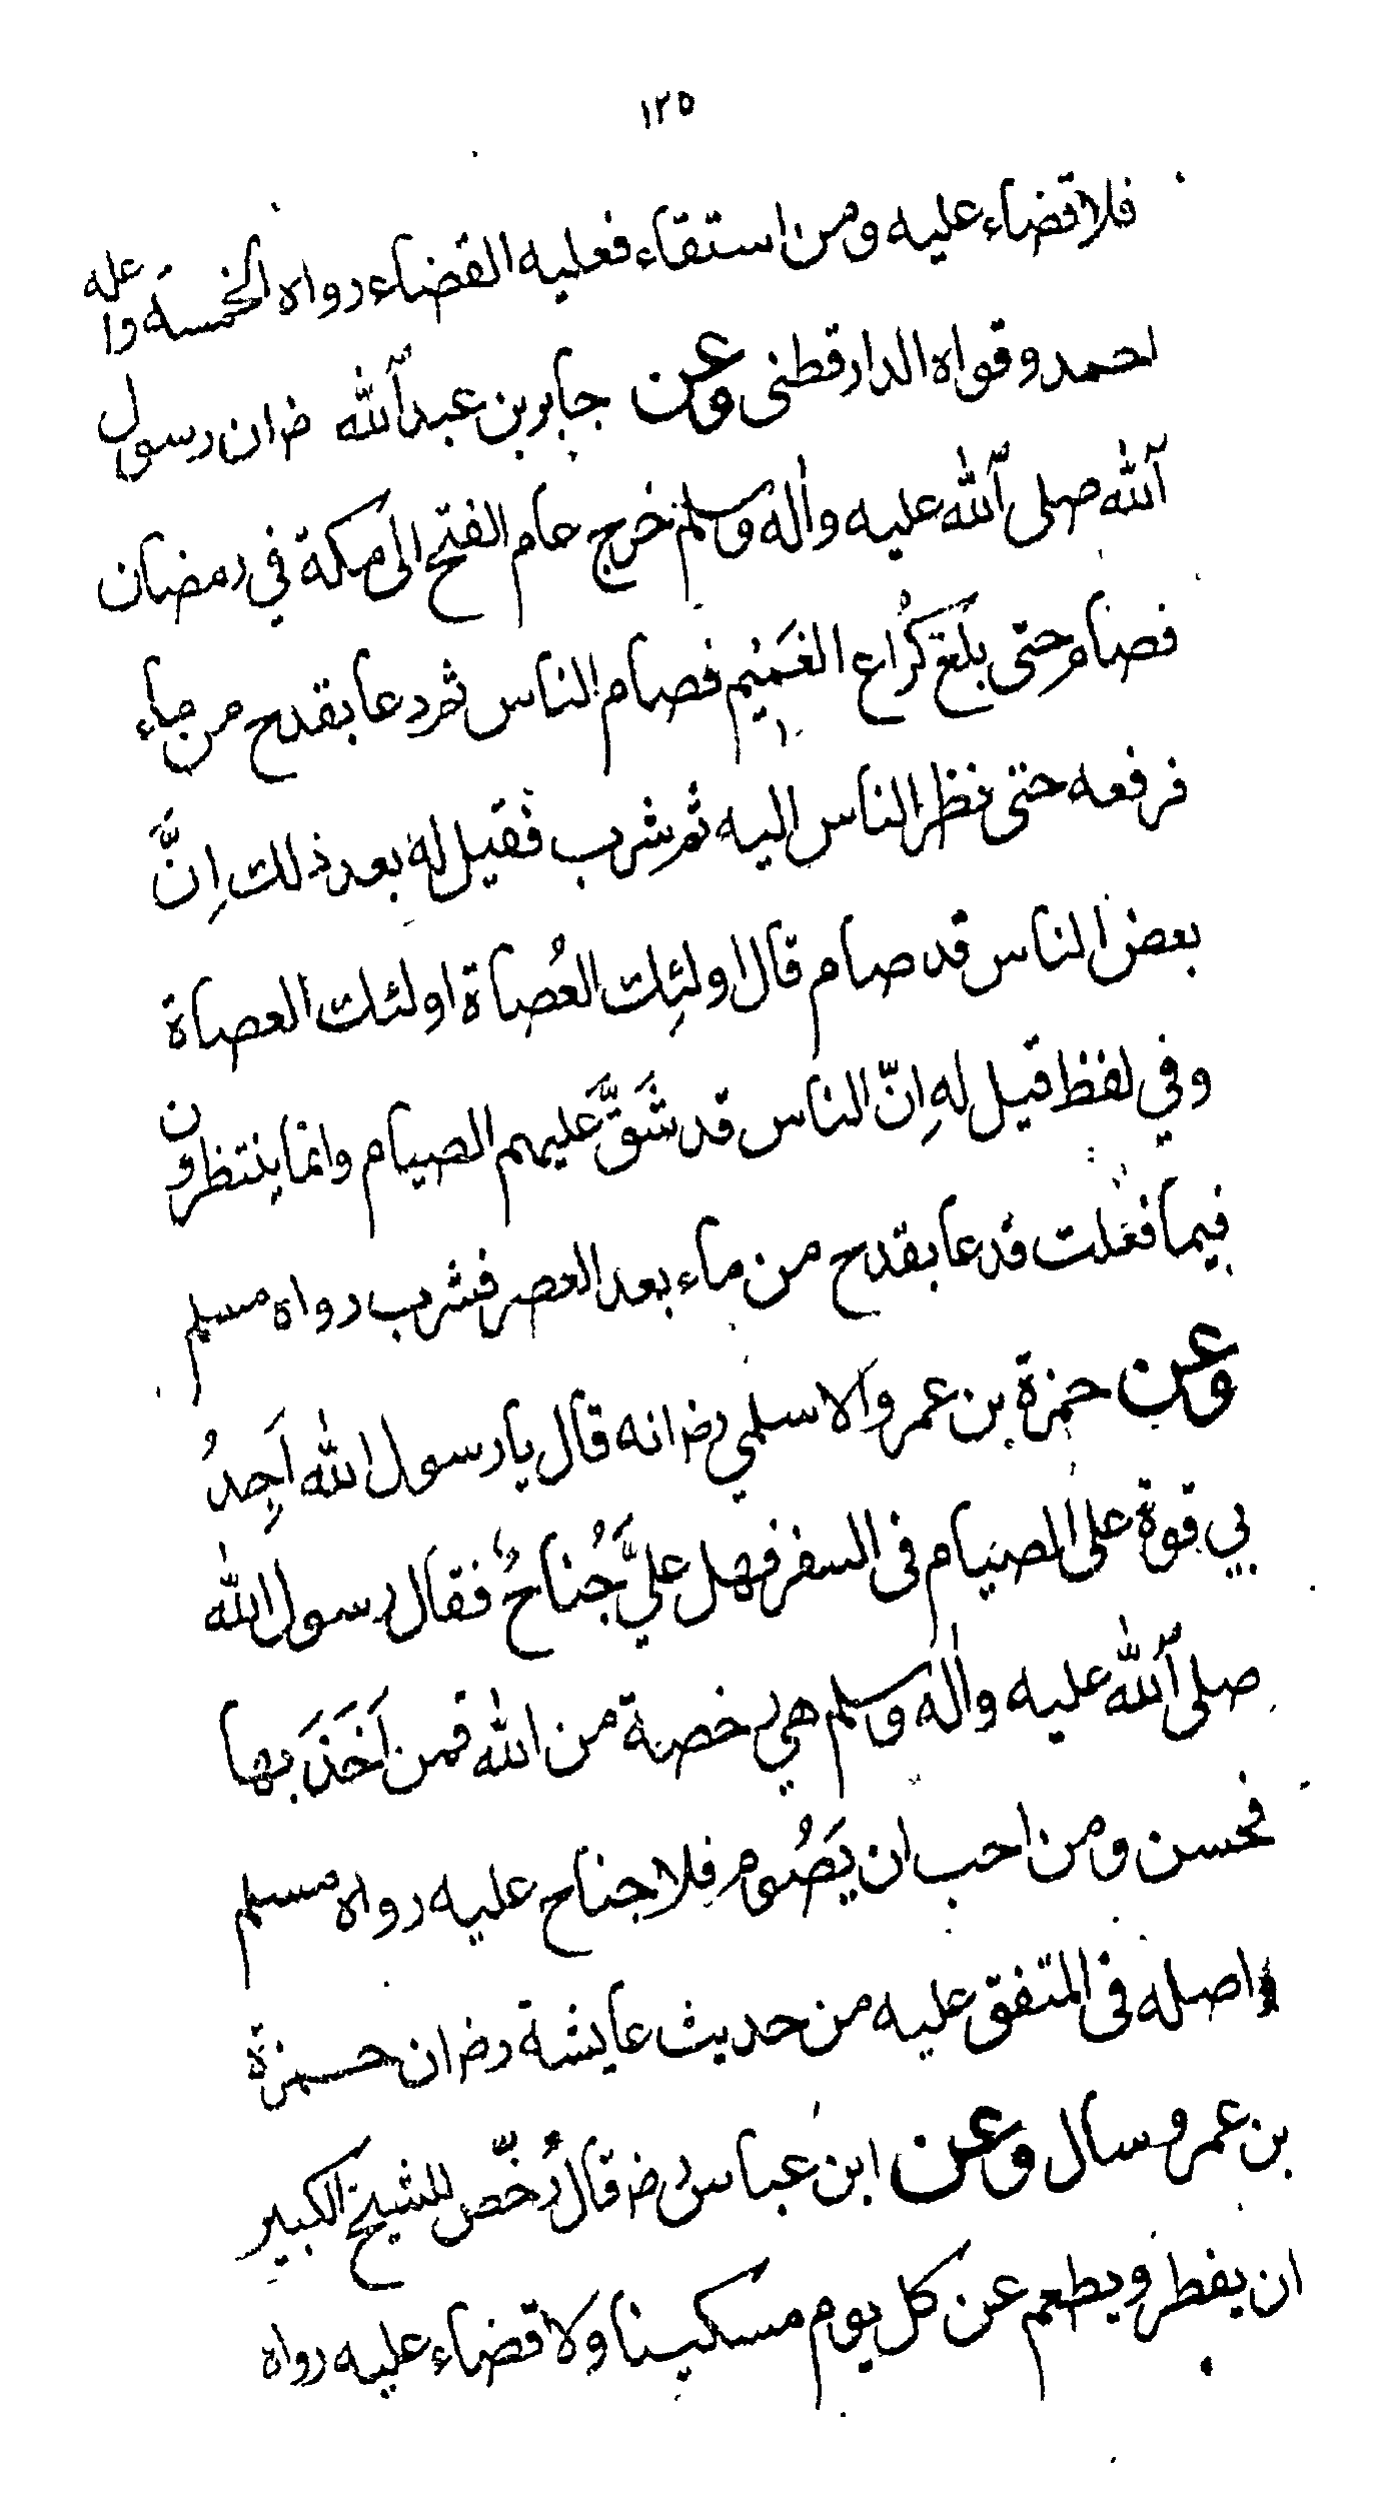 ١٢٥
فلا قضاء عليه ومن استقاء فعليه القضاء رواه الخمسة واعله
احمد وقواه الدارقطنى وعن جابر بن عبد الله رض ان رسول
الله صلى الله عليه واٰله وسلم خرج عام الفتح الى مكة في رمضان
فصام حتى بلغ كُراع الغَمِيْم فصام الناس ثم دعا بقدح من ماء
فرفعه حتى نظر الناس اليه ثم شرب فقيل له بعد ذلك اِنَّ
بعض الناس قد صام قال اولئِك العُصاة اولئك العصاة
وفي لفظ قيل له اِنّ الناس قد شَقَّ عَليهم الصيام وانما ينتظرون
فيما فعَلت فدعا بقدح من ماء بعد العصر فشرب رواه مسلم
وعن حمزة بن عمرو الاسلمي رض انه قال يا رسول الله اَجِدُ
بي قوة على الصيام فى السفر فهل عليَّ جُناحٌ فقال رسول الله
صلى الله عليه واٰله وسلم هي رخصة من الله فمن اَخَذَ بها
فحسن ومن احب ان يَصُوم فلا جناح عليه رواه مسلم
واصله فى المتفق عليه من حديث عايشة رض ان حمزة
بن عمرو سال وعن ابن عباس رض قال رُخّص للشيخ الكبير
ان يفطر ويطعم عن كل يوم مسكينا ولا قضاء عليه رواه